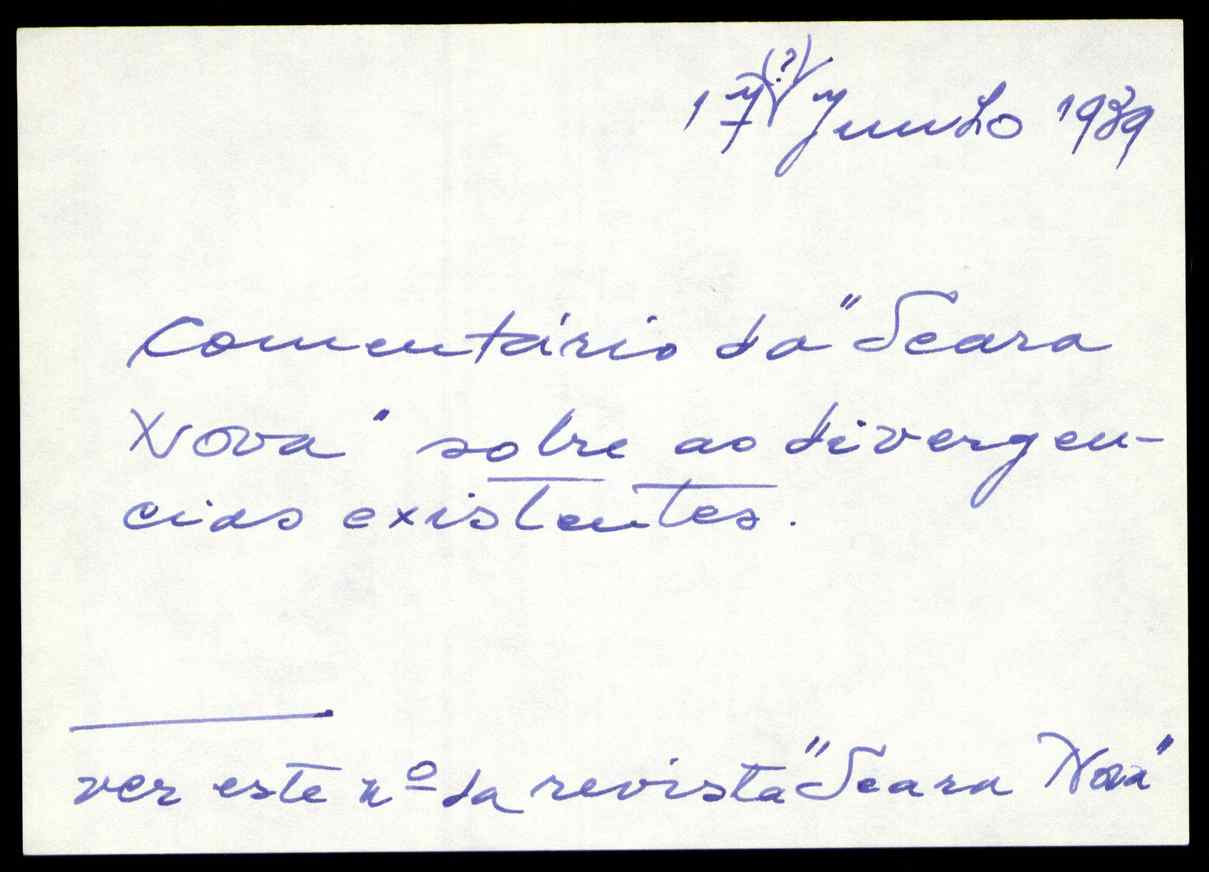 17 (?) Junho 1939
Comentário da "Seara
Nova" sobre as divergen-
cias existentes.
ver este nº da revista "Seara Nova"